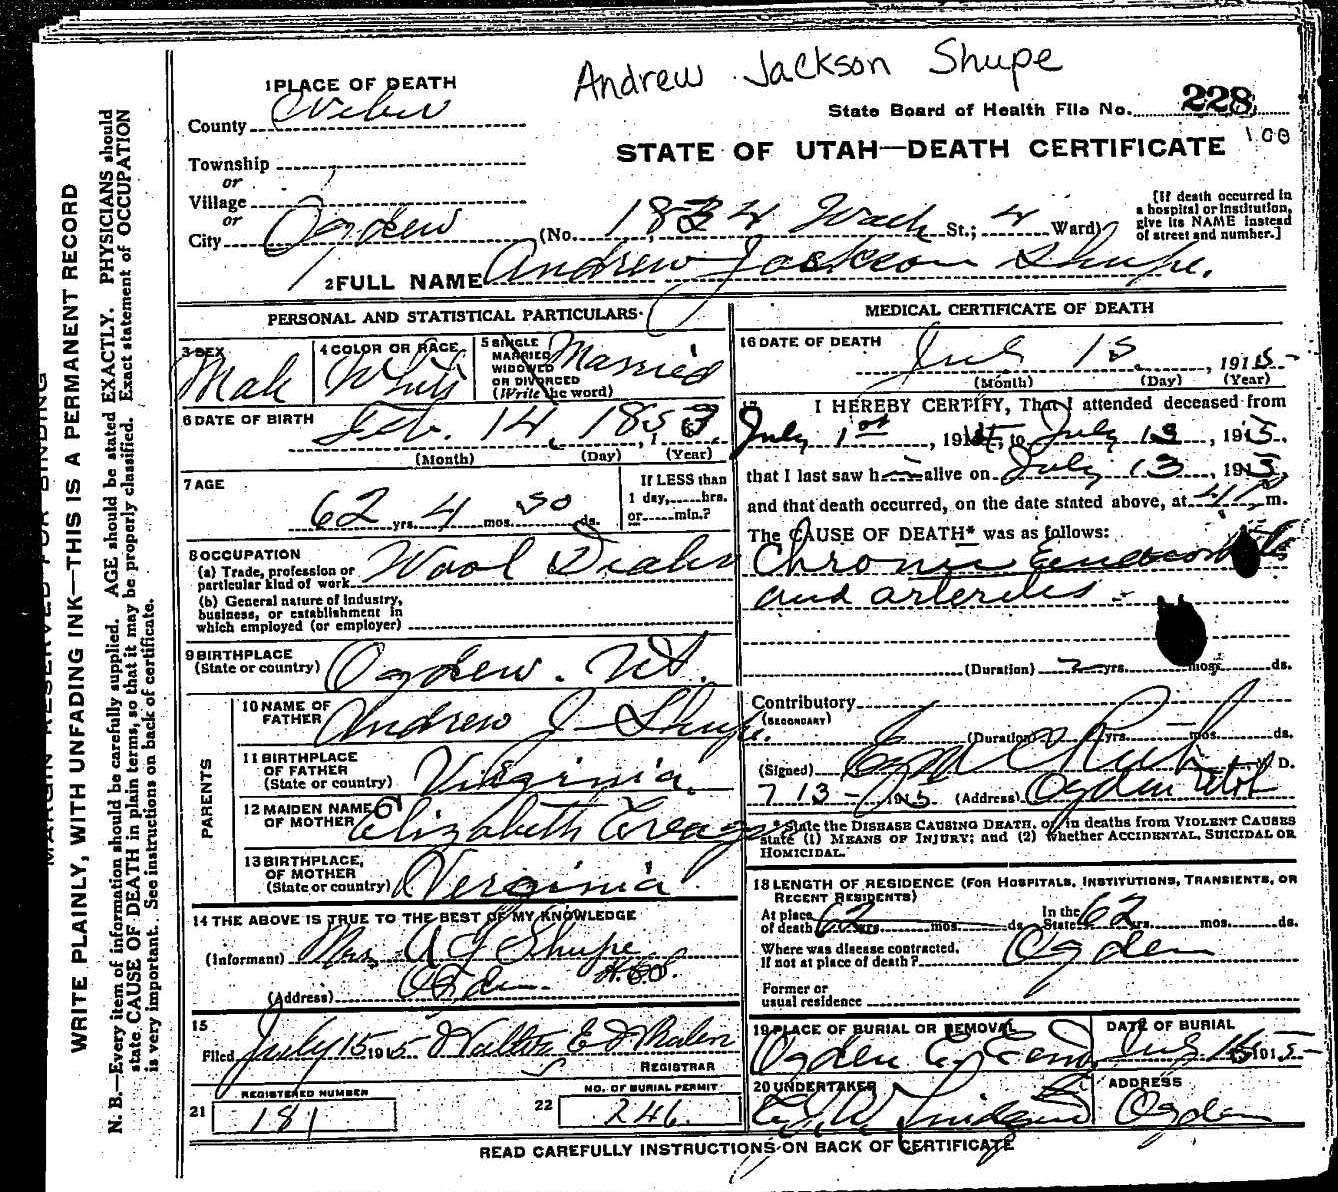 Andrew Jackson Shupe
1 PLACE OF DEATH
County Weber
State Board of Health File No. 228
100
STATE OF UTAH—DEATH CERTIFICATE
Township
or
Village
or
City Ogden
(No. 1834 Wash St.; 4 Ward)
[If death occurred in a hospital or institution, give its NAME instead of street and number.]
2 FULL NAME Andrew Jackson Shupe.
PERSONAL AND STATISTICAL PARTICULARS
3 SEX
Male
4 COLOR OR RACE
White
5 SINGLE MARRIED WIDOWED OR DIVORCED (Write the word)
Married
6 DATE OF BIRTH
Feb. 14, 1853
(Month) (Day) (Year)
7 AGE
62 yrs. 4 mos. ds.
If LESS than 1 day, hrs. or min.?
8 OCCUPATION
(a) Trade, profession or particular kind of work Wool Dealer
(b) General nature of industry, business, or establishment in which employed (or employer)
9 BIRTHPLACE
(State or country) Ogden. Ut.
PARENTS
10 NAME OF FATHER Andrew J Shupe.
11 BIRTHPLACE OF FATHER (State or country) Virginia.
12 MAIDEN NAME OF MOTHER Elizabeth
13 BIRTHPLACE, OF MOTHER (State or country) Virginia
14 THE ABOVE IS TRUE TO THE BEST OF MY KNOWLEDGE
(Informant) Mrs A J Shupe
(Address) Ogden
15
Filed July 15 1915 Walter E Whalen
REGISTRAR
REGISTERED NUMBER
21 181
NO. OF BURIAL PERMIT
22 246.
MEDICAL CERTIFICATE OF DEATH
16 DATE OF DEATH
July 13, 1915
(Month) (Day) (Year)
17 I HEREBY CERTIFY, That I attended deceased from
July 1st, 191 to July 13, 1915.
that I last saw him alive on July 13, 1915,
and that death occurred, on the date stated above, at m.
The CAUSE OF DEATH* was as follows:
Chronic
and arterites
(Duration) 2 yrs. mos. ds.
Contributory
(SECONDARY)
(Duration) yrs. mos. ds.
(Signed) M. D.
7 13 - 1915 (Address) Ogden Utah
* State the DISEASE CAUSING DEATH, or, in deaths from VIOLENT CAUSES
state (1) MEANS OF INJURY; and (2) whether ACCIDENTAL, SUICIDAL OR
HOMICIDAL.
18 LENGTH OF RESIDENCE (FOR HOSPITALS, INSTITUTIONS, TRANSIENTS, OR
RECENT RESIDENTS)
At place of death 62 yrs. mos. ds. In the State 62 yrs. mos. ds.
Where was disease contracted, If not at place of death? Ogden
Former or usual residence
19 PLACE OF BURIAL OR REMOVAL
Ogden City Cem
DATE OF BURIAL
July 1915
20 UNDERTAKER
ADDRESS
Ogden
READ CAREFULLY INSTRUCTIONS ON BACK OF CERTIFICATE
MARGIN RESERVED FOR BINDING
WRITE PLAINLY, WITH UNFADING INK—THIS IS A PERMANENT RECORD
N. B.—Every item of information should be carefully supplied. AGE should be stated EXACTLY. PHYSICIANS should
state CAUSE OF DEATH in plain terms, so that it may be properly classified. Exact statement of OCCUPATION
is very important. See instructions on back of certificate.